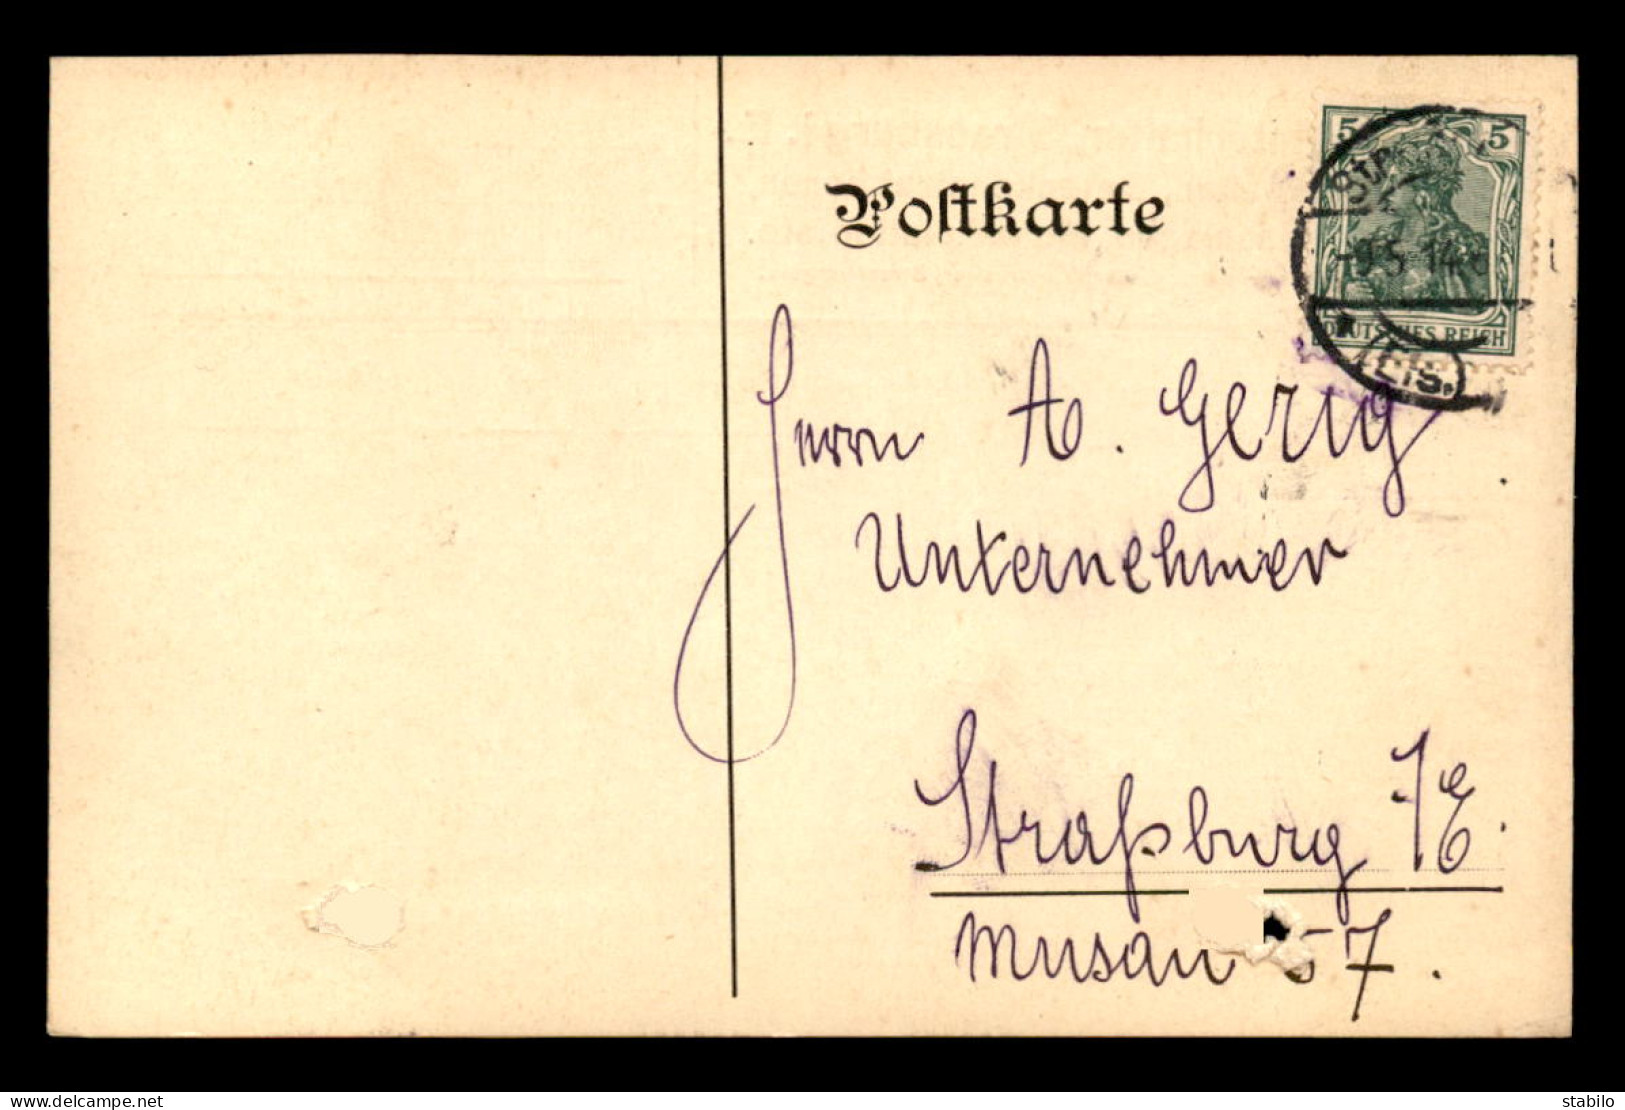 Postkarte
5 5
-9.5.14.
DEUTSCHES REICH
(Els.)
Herrn A. Gerig
Unternehmer
Straßburg i/E.
Musau 57.
www.delcampe.net
stabilo